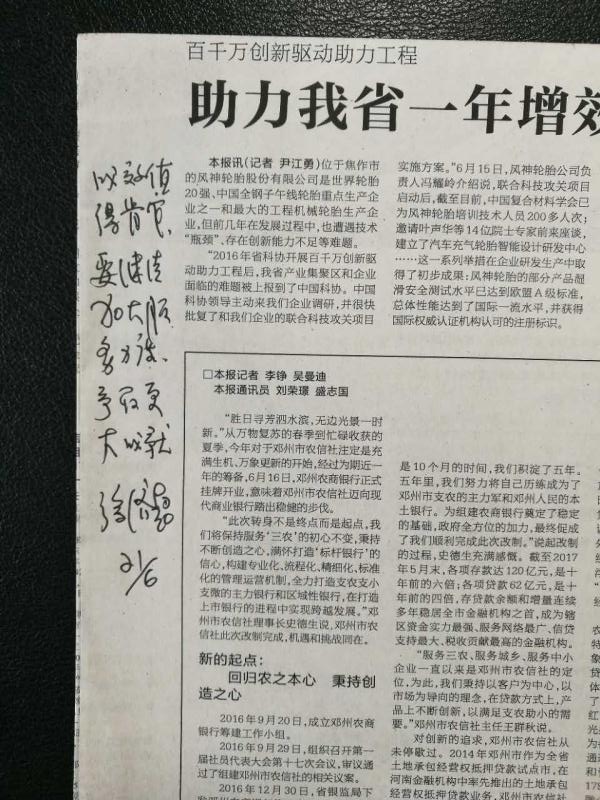 百千万创新驱动助力工程
助力我省一年增效
本报讯(记者 尹江勇)位于焦作市
的风神轮胎股份有限公司是世界轮胎
20强、中国全钢子午线轮胎重点生产企
业之一和最大的工程机械轮胎生产企
业,但前几年在发展过程中,也遭遇技术
“瓶颈”、存在创新能力不足等难题。
“2016年省科协开展百千万创新驱
动助力工程后,我省产业集聚区和企业
面临的难题被上报到了中国科协。中国
科协领导主动来我们企业调研,并很快
批复了和我们企业的联合科技攻关项目
实施方案。”6月15日,风神轮胎公司负
责人冯耀岭介绍说,联合科技攻关项目
启动后,截至目前,中国复合材料学会已
为风神轮胎培训技术人员200多人次;
邀请叶声华等14位院士专家前来座谈,
建立了汽车充气轮胎智能设计研发中心
……这一系列举措在企业研发生产中取
得了初步成果:风神轮胎的部分产品湿
滑安全测试水平已达到欧盟A级标准,
总体性能达到了国际一流水平,并获得
国际权威认证机构认可的注册标识。
成效值
得肯定,
要继续
加大服
务力度,
争取更
大成就
21/6
□本报记者 李铮 吴曼迪
本报通讯员 刘荣璟 盛志国
“胜日寻芳泗水滨,无边光景一时
新。”从万物复苏的春季到忙碌收获的
夏季,今年对于邓州市农信社注定是充
满生机、万象更新的开始,经过为期近一
年的筹备,6月16日,邓州农商银行正式
挂牌开业,意味着邓州市农信社迈向现
代商业银行踏出稳健的步伐。
“此次转身不是终点而是起点,我
们将保持服务‘三农’的初心不变,秉持
不断创造之心,满怀打造‘标杆银行’的
信心,构建专业化、流程化、精细化、标准
化的管理运营机制,全力打造支农支小
支微的主力银行和区域性银行,在打造
上市银行的进程中实现跨越发展。”邓州
市农信社理事长史德生说,邓州市农
信社此次改制完成,机遇和挑战同在。
新的起点:
回归农之本心 秉持创
造之心
2016年9月20日,成立邓州农商
银行筹建工作小组。
2016年9月29日,组织召开第一
届社员代表大会第十七次会议,审议通
过了组建邓州市农信社的相关议案。
2016年12月30日,省银监局下
是10个月的时间,我们积淀了五年。
五年里,我们努力将自己历练成为了
邓州市支农的主力军和邓州人民的本
土银行。为组建农商银行奠定了稳定
的基础,政府全方位的加力,最终促成
了我们顺利完成此次改制。”说起改制
的过程,史德生充满感慨。截至2017
年5月末,各项存款达120亿元,是十
年前的六倍;各项贷款62亿元,是十
年前的四倍,存贷款余额和增量连续
多年稳居全市金融机构之首,成为辖
区资金实力最强、服务网络最广、信贷
支持最大、税收贡献最高的金融机构。
“服务三农、服务城乡、服务中小
企业一直以来是邓州市农信社的定
位,为此,我们秉持以客户为中心,以
市场为导向的理念,在贷款方式上,产
品上不断创新,以满足支农助小的需
要。”邓州市农信社主任王群秋说。
对创新的追求,邓州市农信社从
未停歇过。2014年邓州市作为全省
土地承包经营权抵押贷款试点市,在
河南金融机构中率先推出的土地承包
经营权抵押贷款业务,邓州市农信社